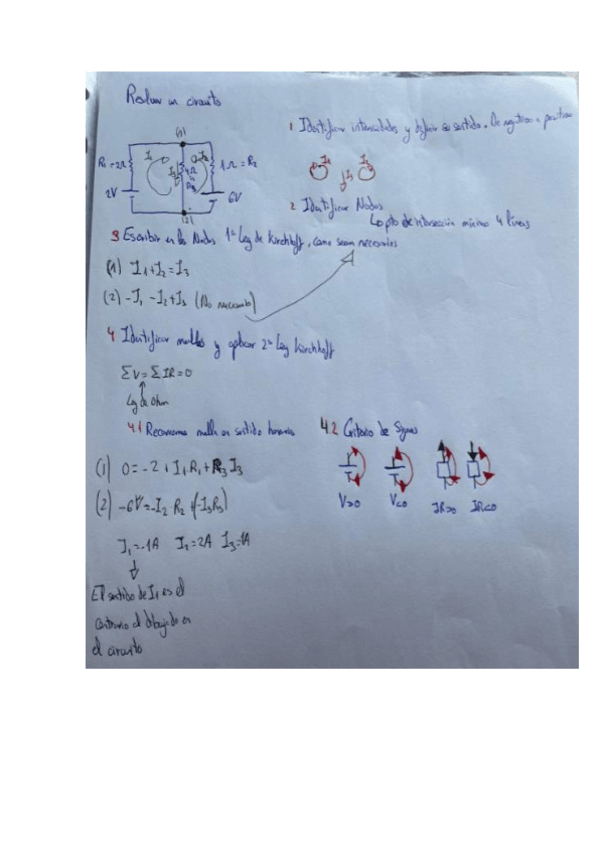 Resolver un circuito
1 Identificar intensidades y definir su sentido. De negativo a positivo
(1)
I₁
I₂
R₁ = 2Ω
I₃
4Ω
R₃
1Ω = R₂
2V
6V
(2)
I₁
I₃
I₂
2 Identificar Nodos
↳ pto de intersección mínimo 4 líneas
3 Escribir en los Nodos 1ª Ley de Kirchhoff, como sean necesarios
(1) I₁+I₂=I₃
(2) -I₁ -I₂+I₃ (No necesario)
4 Identificar mallas y aplicar 2ª Ley Kirchhoff
ΣV = ΣIR = 0
Ley de Ohm
4.1 Recorremos malla en sentido horario
4.2 Criterio de Signos
(1) 0 = -2 + I₁R₁ + R₃I₃
(2) -6V = -I₂ R₂ + (-I₃R₃)
V>0
V<0
IR>0
IR<0
I₁ = -1A I₁ = 2A I₃ = 1A
El sentido de I₁ es el
contrario al dibujado en
el circuito